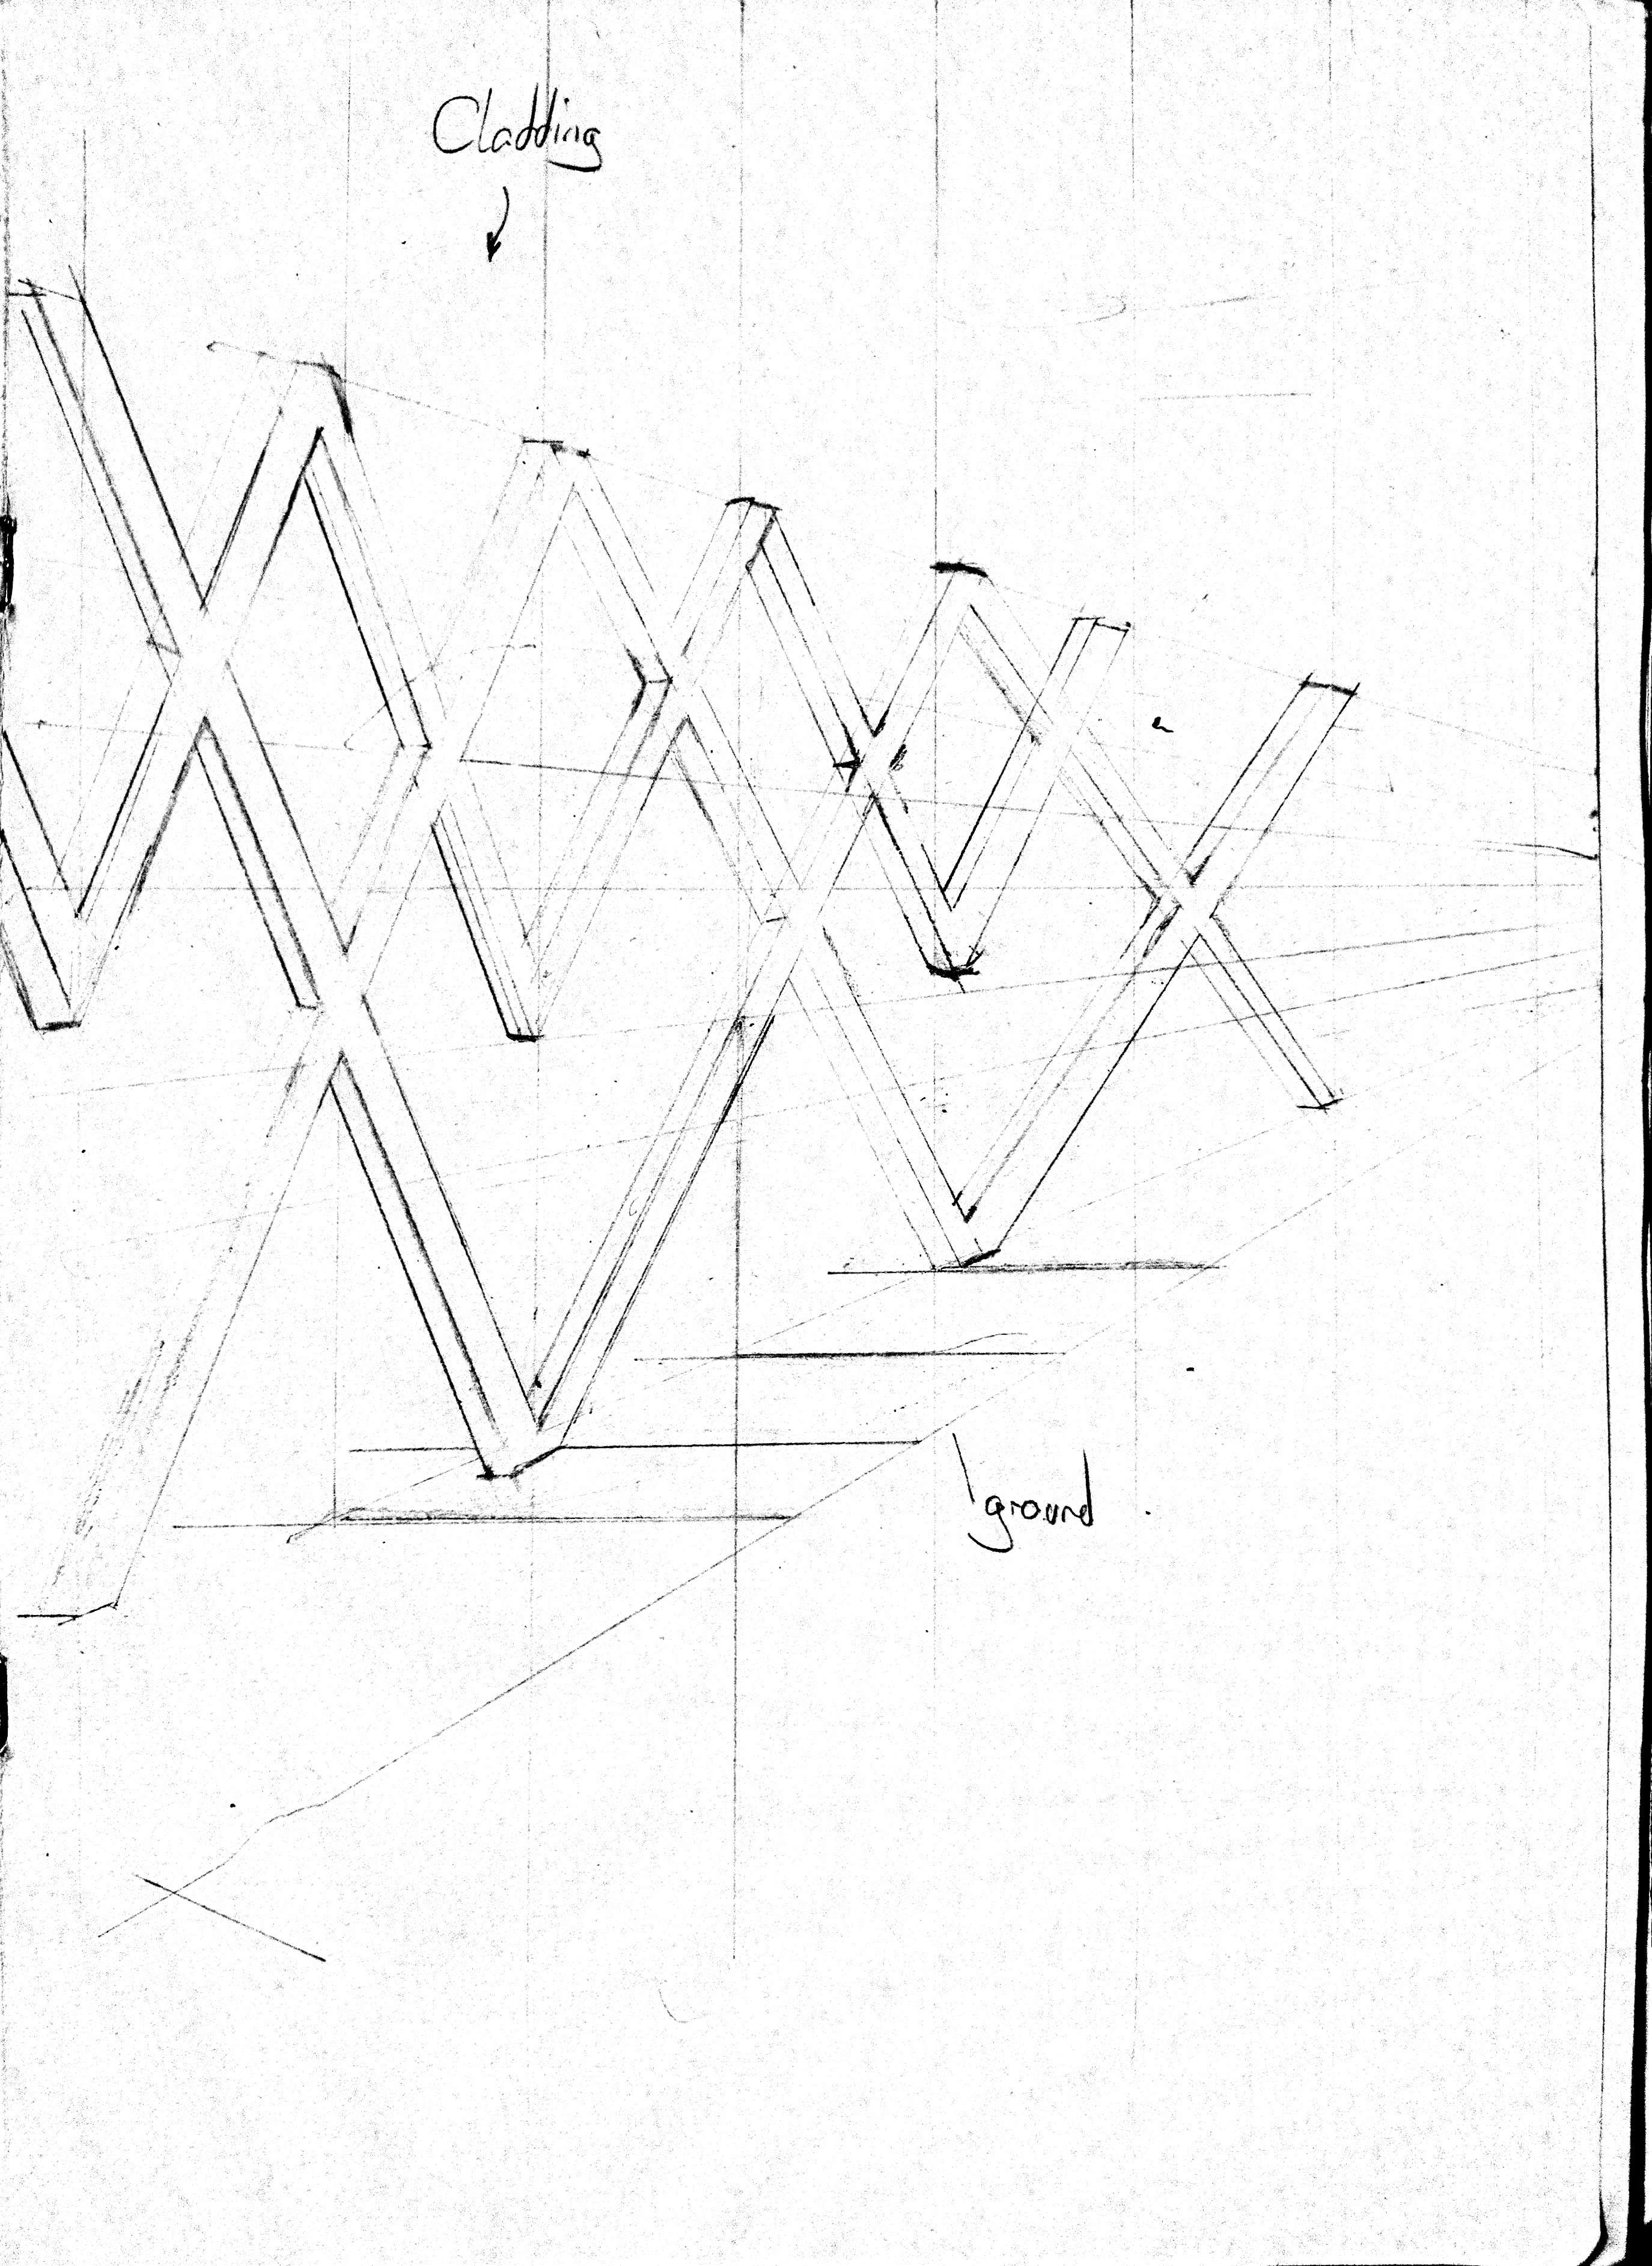 Cladding
ground